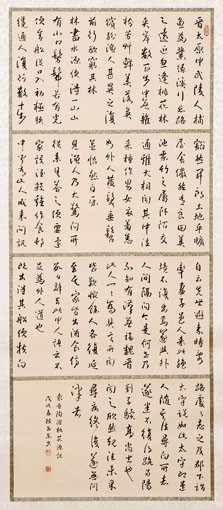 晉太原中武陵人捕
魚為業緣溪行忘路
之遠近忽逢桃花林
夾岸數百步中無雜
樹芳草鮮美落英
繽紛漁人甚異之復
前行欲窮其林
林盡水源便得一山山
有小口髣髴若有光
便舍船從口入初極狹
纔通人復行數十步
豁然開朗土地平曠
屋舍儼然有良田美
池桑竹之屬阡陌交
通雞犬相聞其中往
來種作男女衣著悉
如外人黃髮垂髫
並怡然自樂
見漁人乃大驚問所
從來具答之便要還
家設酒殺雞作食村
中聞有此人咸來問訊
自云先世避秦時亂
率妻子邑人來此絕
境不復出焉遂與外
人間隔問今是何世乃
不知有漢無論魏晉
此人一一為具言所聞
皆歎惋餘人各復延
至其家皆出酒食停
數日辭去此中人語云不
足為外人道也
既出得其船便扶向
路處處誌之及郡下詣
太守說如此太守即遣
人隨其往尋向所誌
遂迷不復得路南陽
劉子驥高尚士也
聞之欣然規往未果
尋病終後遂無問
津者
東晉陶淵明桃花源記
戊戌春